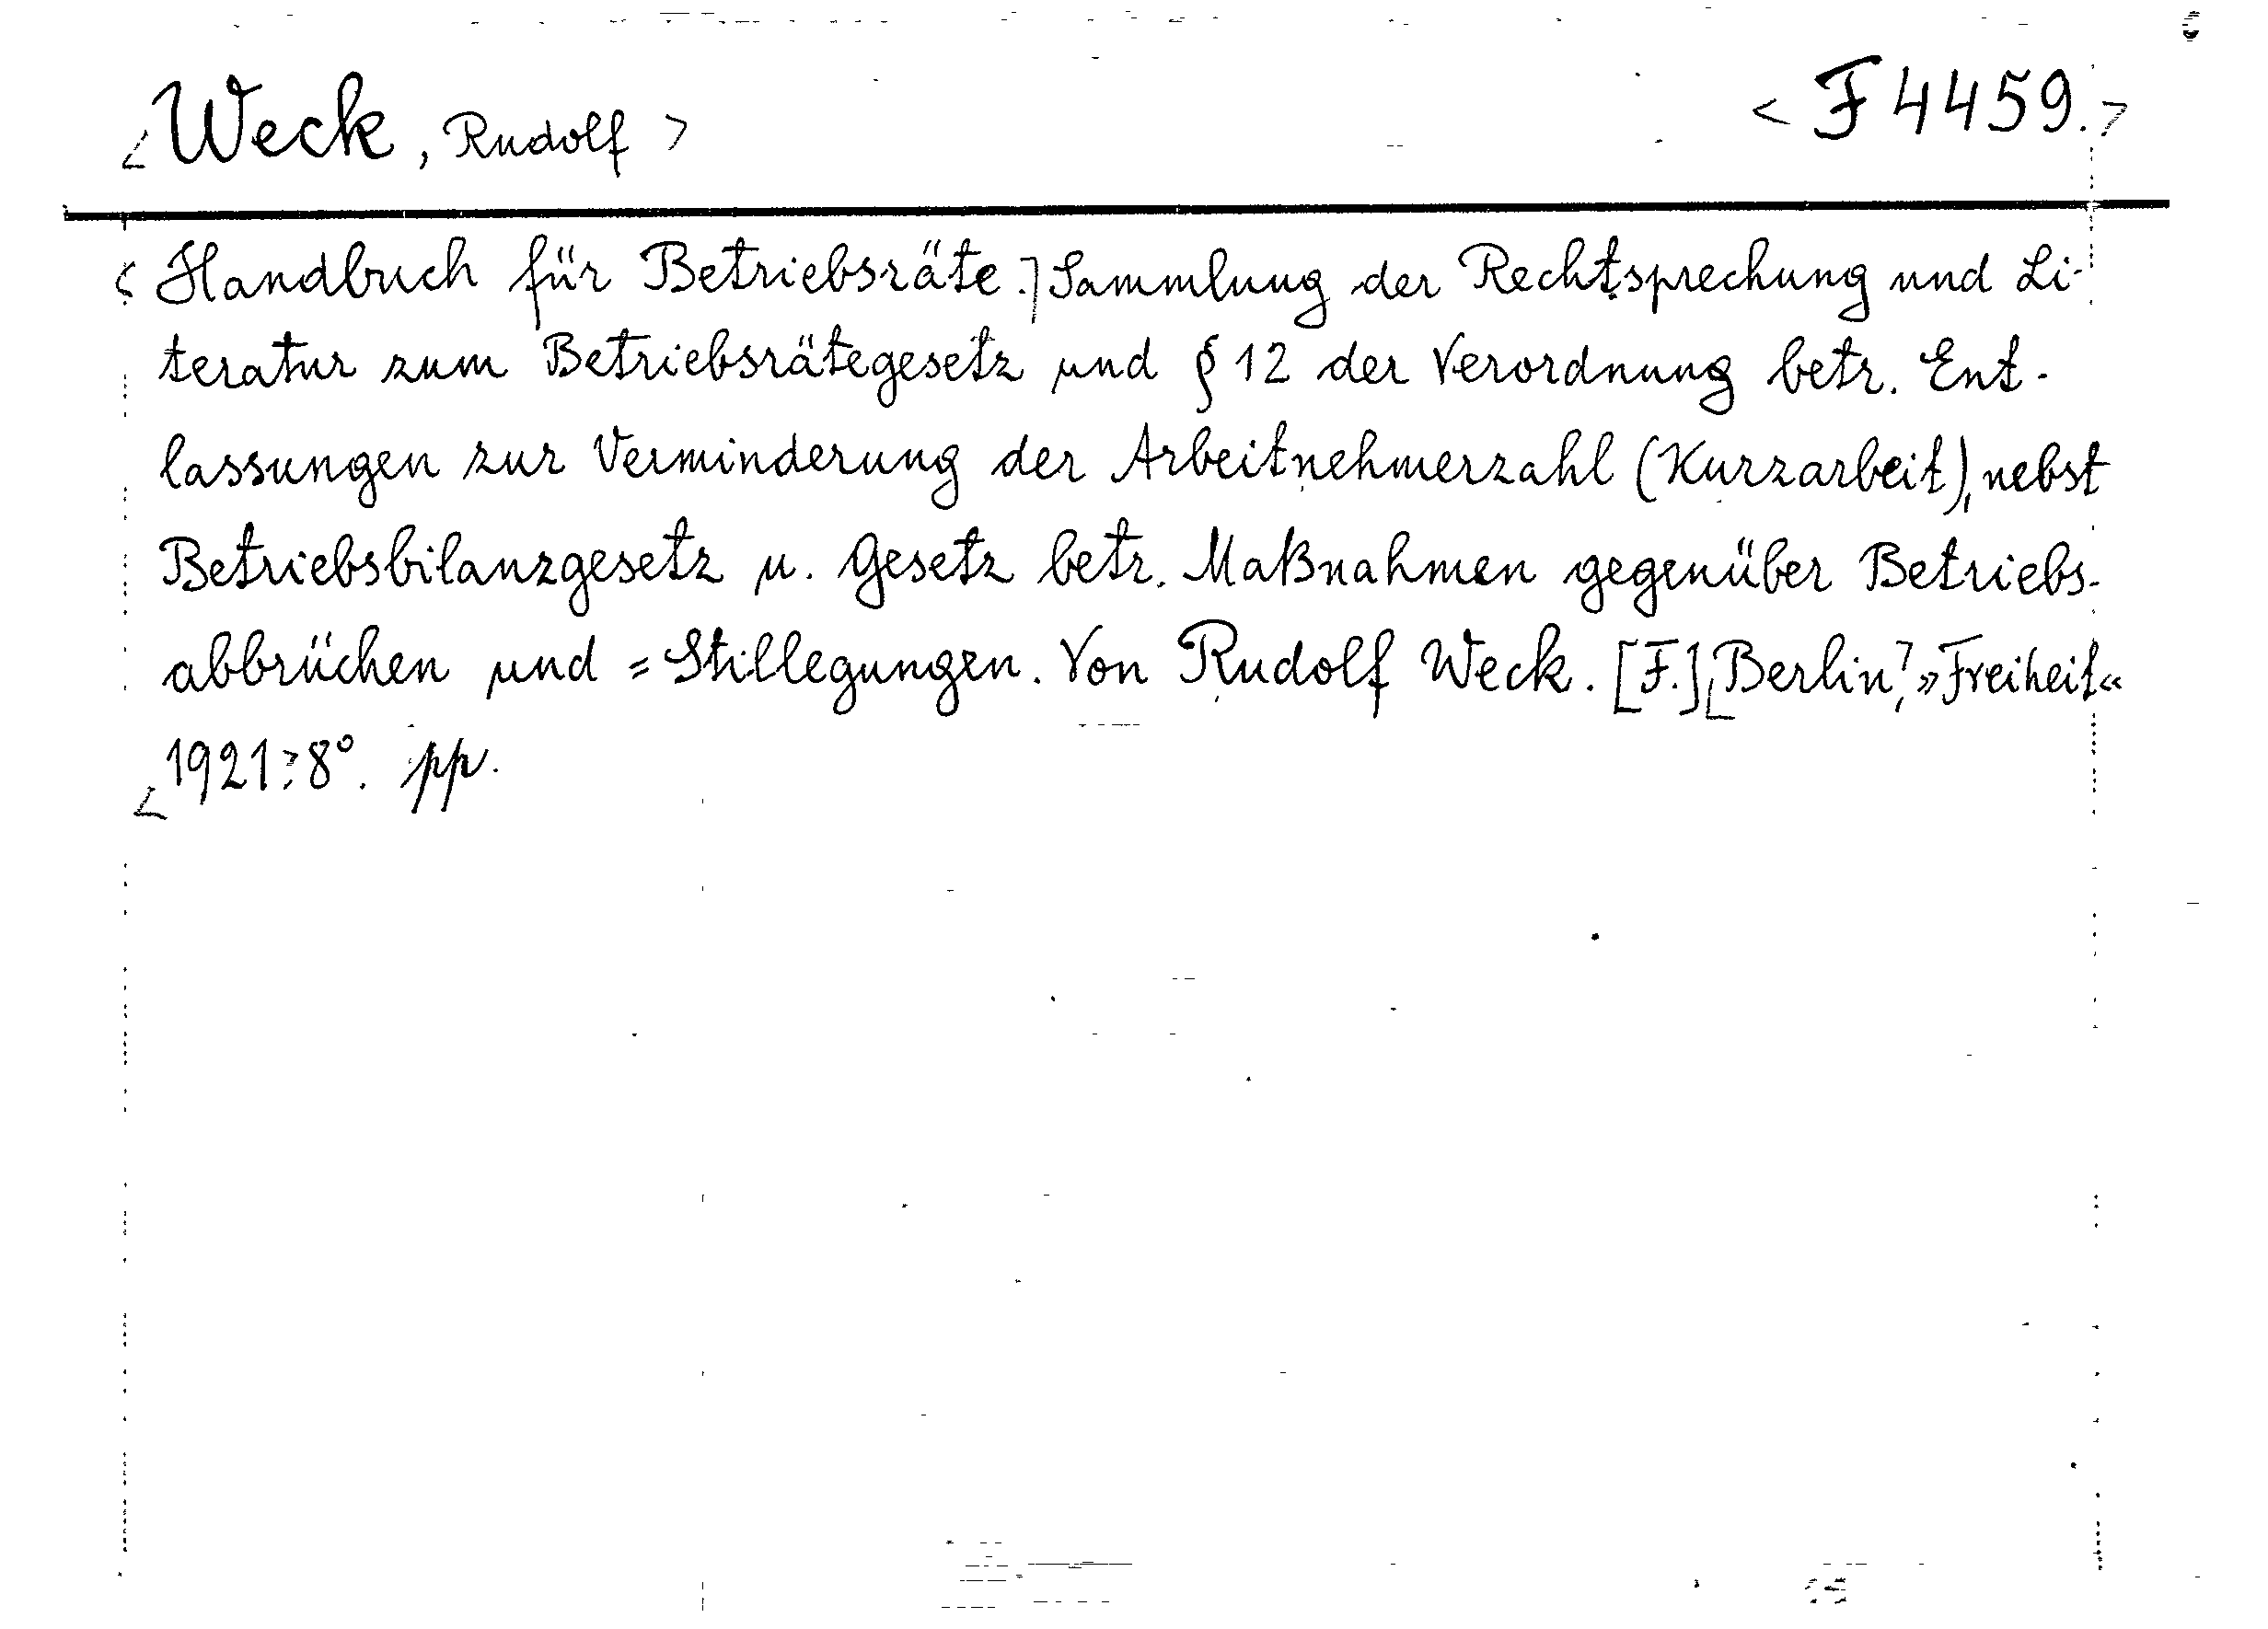 <Weck, Rudolf> <F 4459.>
<Handbuch für Betriebsräte.> Sammlung der Rechtsprechung und Li-
teratur zum Betriebsrätegesetz und § 12 der Verordnung betr. Ent-
lassungen zur Verminderung der Arbeitnehmerzahl (Kurzarbeit), nebst
Betriebsbilanzgesetz u. Gesetz betr. Maßnahmen gegenüber Betriebs-
abbrüchen und =Stillegungen. Von Rudolf Weck. [F.] <Berlin>, »Freiheit«
<1921>. 8°. pp.